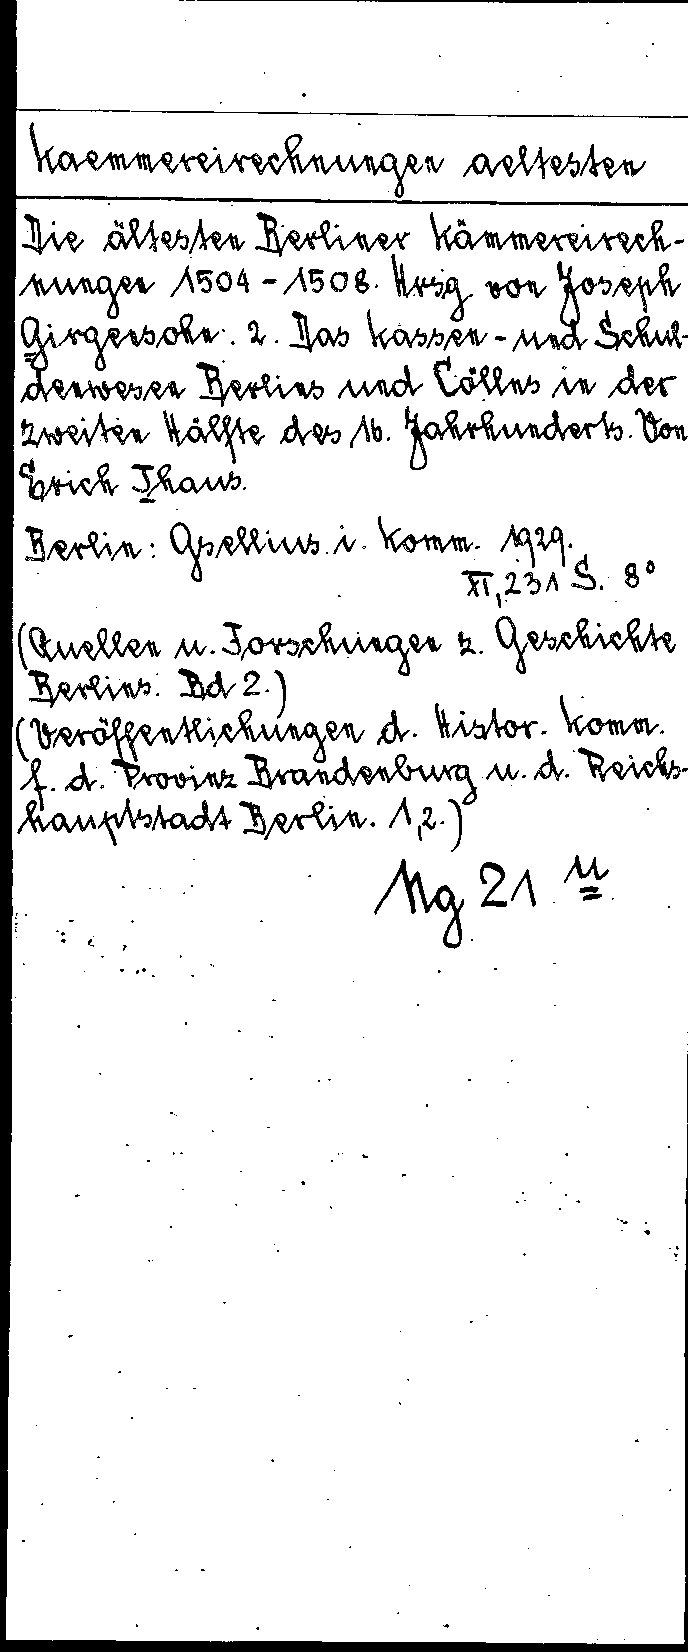 Kaemmereirechnungen aeltesten
Die ältesten Berliner Kämmereirech-
nungen 1504-1508. Hrsg von Joseph
Girgensohn. 2. Das Kassen- und Schul-
denwesen Berlins und Cöllns in der
zweiten Hälfte des 16. Jahrhunderts. Von
Erich Thaus.
Berlin: Gsellius i. Komm. 1929.
XI, 231 S. 8°
(Quellen u. Forschungen z. Geschichte
Berlins. Bd 2.)
(Veröffentlichungen d. Histor. Komm.
f. d. Provinz Brandenburg u. d. Reichs-
hauptstadt Berlin. 1,2.)
Ng 21 u